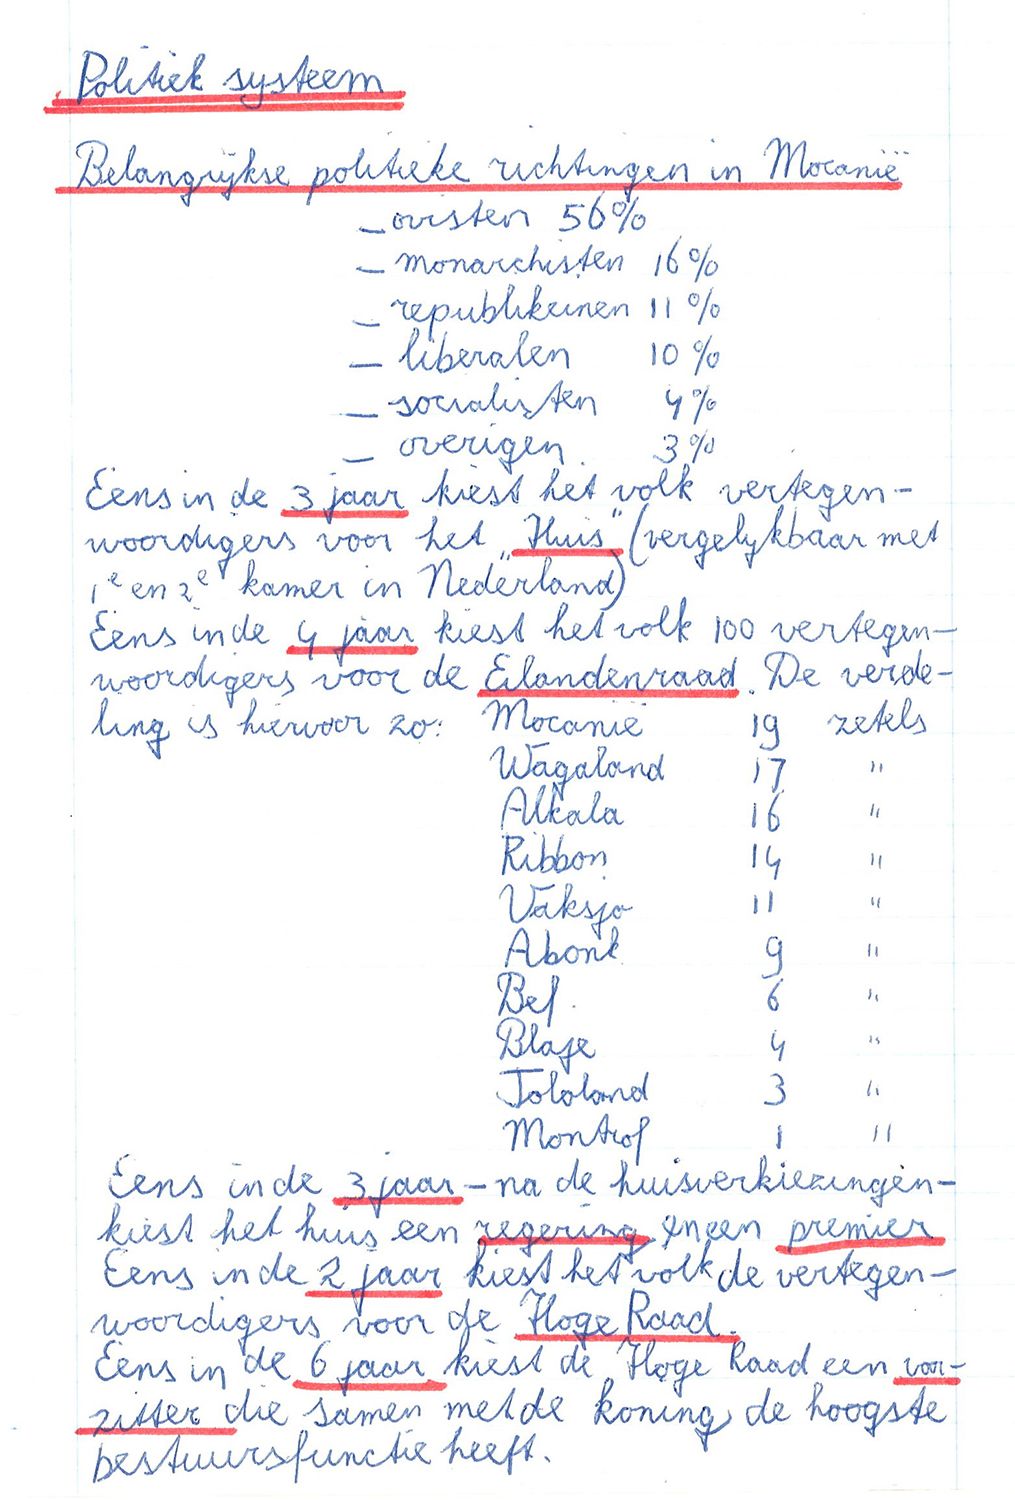 Politiek systeem
Belangrijkse politieke richtingen in Mocanië
- ovisten 56%
- monarchisten 16%
- republikeinen 11%
- liberalen 10%
- socialisten 4%
- overigen 3%
Eens in de 3 jaar kiest het volk vertegen-
woordigers voor het "Huis" (vergelijkbaar met
1e en 2e kamer in Nederland)
Eens in de 4 jaar kiest het volk 100 vertegen-
woordigers voor de Eilandenraad. De verde-
ling is hiervoor zo: Mocanië 19 zetels
Wagaland 17 "
Alkala 16 "
Ribbon 14 "
Väksjo 11 "
Abonk 9 "
Bef. 6 "
Blafe 4 "
Jololand 3 "
Montrof 1 "
Eens in de 3 jaar - na de huisverkiezingen -
kiest het huis een regering en een premier
Eens in de 2 jaar kiest het volk de vertegen-
woordigers voor de Hoge Raad.
Eens in de 6 jaar kiest de Hoge Raad een voor-
zitter die samen met de koning de hoogste
bestuursfunctie heeft.